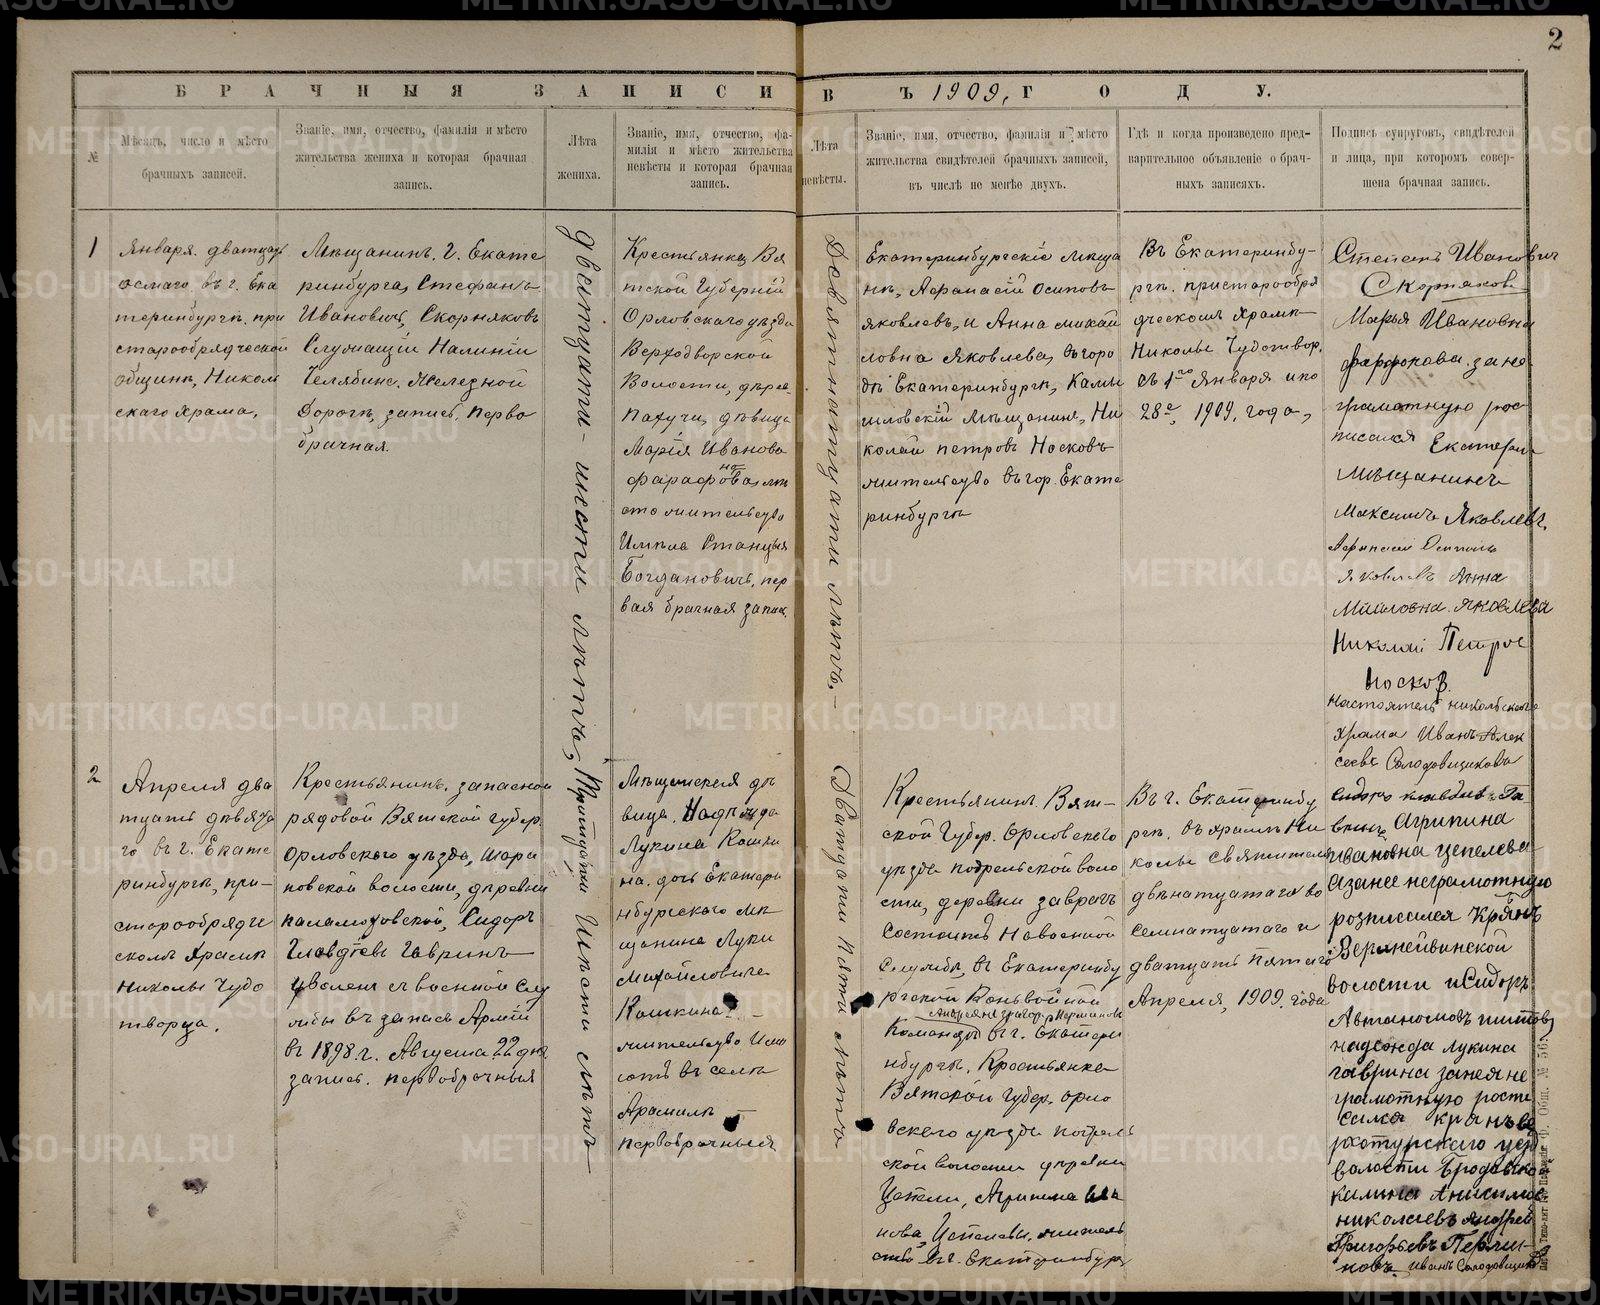 2
БРАЧНЫЯ ЗАПИСИ ВЪ 1909, ГОДУ.
№
Мѣсяцъ, число и мѣсто
брачныхъ записей.
Званіе, имя, отчество, фамилія и мѣсто
жительства жениха и которая брачная
запись.
Лѣта
жениха.
Званіе, имя, отчество, фа-
милія и мѣсто жительства
невѣсты и которая брачная
запись.
Лѣта
невѣсты.
Званіе, имя, отчество, фамилія и мѣсто
жительства свидѣтелей брачныхъ записей,
въ числѣ не менѣе двухъ.
Гдѣ и когда произведено пред-
варительное объявленіе о брач-
ныхъ записяхъ.
Подпись супруговъ, свидѣтелей
и лица, при которомъ совер-
шена брачная запись.
1
Января. дватцать
осмаго, въ г. Ека
теринбургѣ. при
старообрядческой
общинѣ, Николь
скаго храма,
Мѣщанинъ. г. Екате
ринбурга, Стефанъ
Ивановичъ, Скорняковъ
Служащій Налиніи
Челябинс. Железной
Дорогѣ, запись, перво
брачная.
двѣнтцати- шести лѣтъ,
Крестьянка Вя
тской Губерніи
Орловскаго уѣзда
Верходворской
Волости, дерев
Пахучи, дѣвица
Марія Иванова
на
фарафова, мѣ
сто жительства
Имѣла Станцыя
Богдановичъ, пер
вая брачная запис.
Девятнатцати лѣтъ.-
Екатеринбургскіе мѣща
нъ, Афанасій Осиповъ
яковлевъ, и Анна михай
ловна Яковлева, въ горо
дѣ Екатеринбургѣ, Камы
шловскій мѣщанинъ, Ни
колай петровъ Носковъ
жительсво въ гор. Екате
ринбургѣ
Въ Екатеринбу-
ргѣ. пристарообря
дческомъ храмѣ
Николы Чудотвор.
съ 1го Января и по
28е, 1909, года,
Степенъ Ивановичъ
Скорняковъ
Марья Ивановна
фарфокова. за не
граматную рос
писался Екатери
мѣщанинъ
Максимъ Яковлевъ.
Афанасій Осиповъ
Яковлевъ Анна
Миаловна. яковлева
Николай Петров
Носков.
настоятель никольскаго
храма Иванъ Алек
сеевъ Солодовщиковъ
2
Апреля два
тцать дѣвята
го въ г. Екате
ринбургѣ, при-
старообряде
скомъ храмѣ
Николы Чудо
творца.
Крестьянинъ. запасной
рядовой Вятской губер.
Орловскаго уѣзда, шара
новской волости, дѣревни
каламозовской, Сидоръ
Главдіевъ Гавринъ
уволенъ съ военной слу
жбы въ запасъ Армій
въ 1898. г. Августа 22 дня
запись. первобрачныя
Тритцати Шѣсти лѣтъ
Мѣщанская дѣ
вица. Надѣжда
Лукина Кошки
на. дочь Екатери
нбургскаго мѣ
щанина Луки
Михайловиче
Кошкина -
жительсво Име
ютъ въ селѣ
Арамиль -
первобрачныея
Дватцати Пяти лѣтъ
Крестьянинъ. Вят-
ской Губер. Орловскаго
уѣзда подрельской воло
сти, деревни заврагъ
Состоитъ Навоенной
Службѣ, въ Екатеринбу
ргской Конвойной
Андрияне григор. Перминовъ
Команды въ г. Екатери
нбургѣ. Крестьянке
Вятской Губер. орло
вскаго уѣзда подрель
ской волости дѣревни
Цепели, Агрипина Ива
нова, Цепелева. житель
ство въ г. Екатеринбург
Въ г. Екатеринбу
ргѣ. въ храмѣ Ни
колы Святителя
двѣнатцатаго во
семнатцатаго и
дватцать пятаго
Апреля, 1909. года
вринъ Агрипина
Ивановна цепелева
азанее неграмотную
розписался Кр̃янъ
Верхнейвинской
волости иСидоръ
Автаномовъ титовъ
надежда лукина
гаврина занея не
грамотную роспи
сался кр̃янъ ве
рхотурскаго уезд
валости Бродовской
калина Анисимов
николаевъ Андрей
Григорьевъ Перми-
новъ. Иванъ Солодовщиков